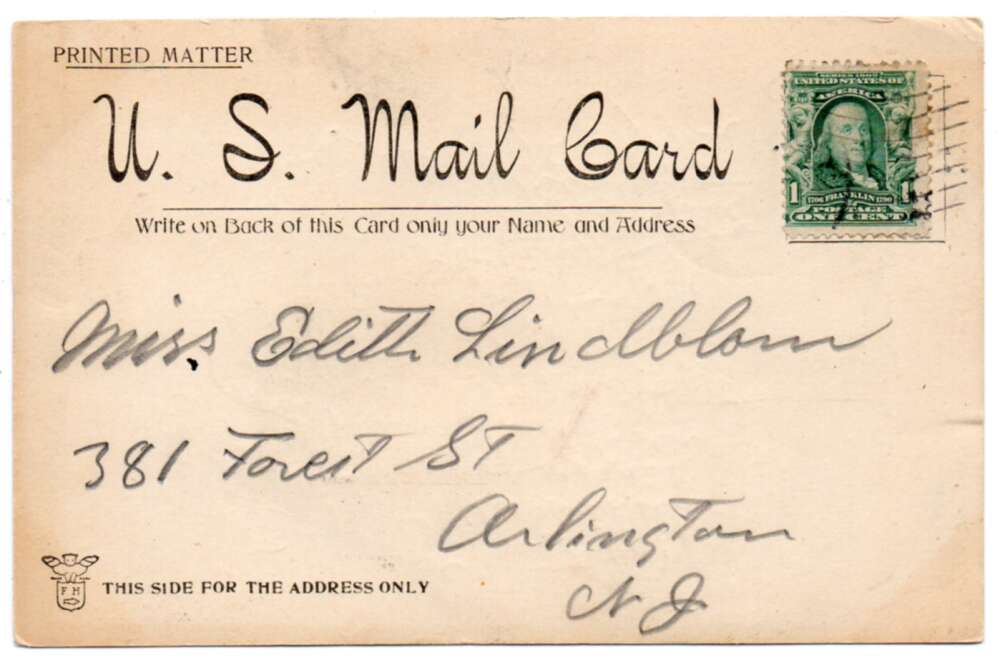 PRINTED MATTER
U. S. Mail Card
Write on Back of this Card only your Name and Address
SERIES 1902
UNITED STATES OF
AMERICA
1 1
1706 FRANKLIN 1790
POSTAGE
ONE CENT
Miss Edith Lindblom
381 Forest St
Arlington
N J
F H
THIS SIDE FOR THE ADDRESS ONLY